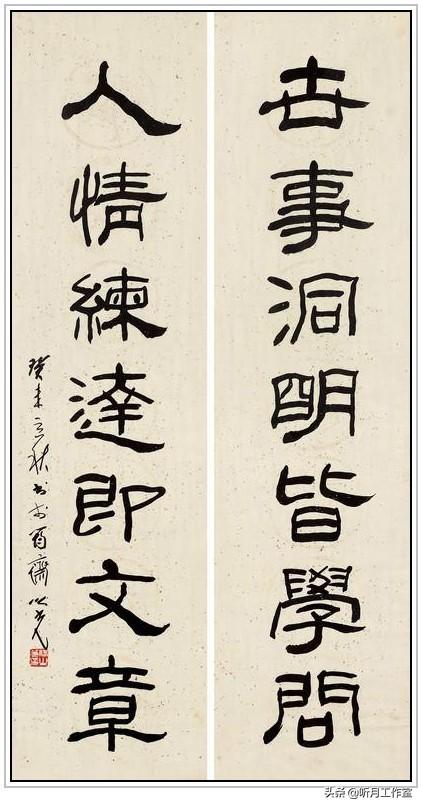 世事洞明皆學問
人情練達即文章
癸未立秋書於百齋
头条 @听月工作室